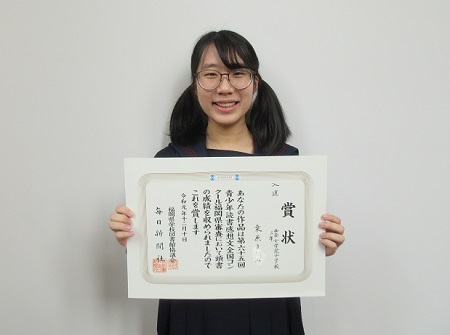 賞状
入選
あなたの作品は第六十五回
青少年読書感想文全国コン
クール福岡県審査において頭書
の成績を収められましたので
これを賞します
令和元年十二月十日
福岡県学校図書館協議会
毎日新聞社